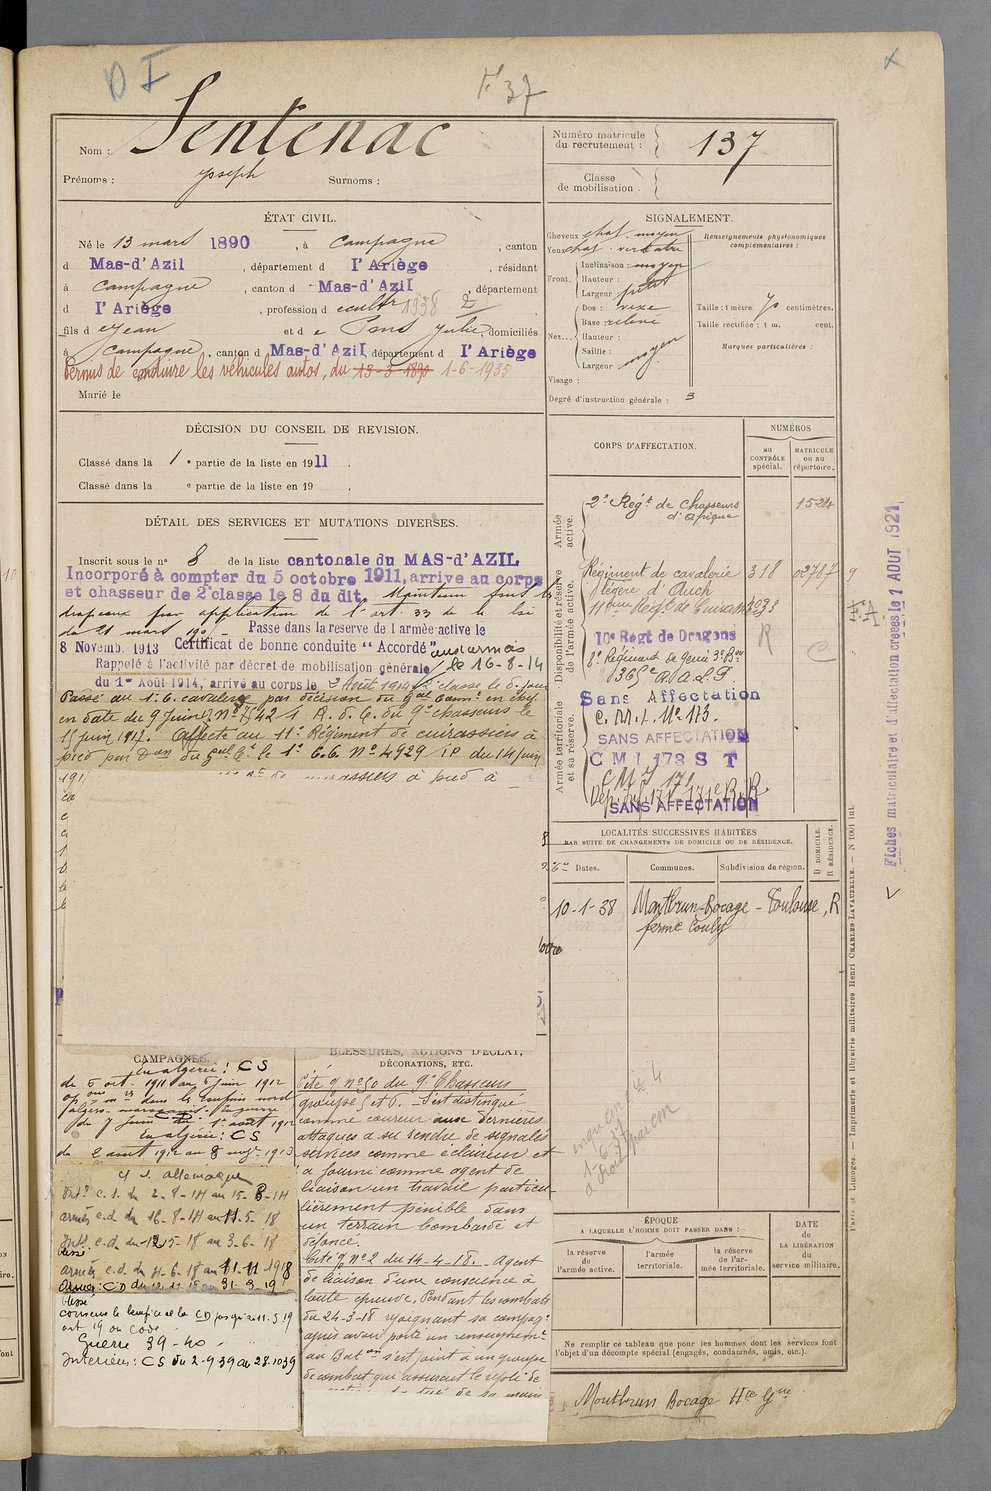 D I
F 37
Nom : Sentenac
Prénoms : Joseph Surnoms :
Numéro matricule du recrutement : 137
Classe de mobilisation .
ÉTAT CIVIL.
Né le 13 mars 1890, à Campagne, canton
d Mas-d'Azil, département d l'Ariège, résidant
à Campagne, canton d Mas-d'Azil, département
d l'Ariège, profession d cultr 1938
fils d e Jean et d e Pons Julie, domiciliés
à Campagne, canton d Mas-d'Azil, département d l'Ariège
Permis de conduire les véhicules autos, du 13-3-1890 1-6-1935
Marié le
SIGNALEMENT.
Cheveux chat. moyen
Yeux chat. verdatre
Front. Inclinaison : moyen
Hauteur :
Largeur : petit
Nez... Dos : vexe
Base : relevé
Hauteur :
Saillie :
Largeur : moyen
Visage :
Degré d'instruction générale : 3
Renseignements physionomiques complémentaires :
Taille : 1 mètre 70 centimètres.
Taille rectifiée : 1 m. cent.
Marques particulières :
DÉCISION DU CONSEIL DE REVISION.
Classé dans la 1 e partie de la liste en 1911 .
Classé dans la e partie de la liste en 19 .
DÉTAIL DES SERVICES ET MUTATIONS DIVERSES.
Inscrit sous le n° 8 de la liste cantonale du MAS-d'AZIL
Incorporé à compter du 5 octobre 1911, arrive au corps
et chasseur de 2e classe le 8 du dit. Maintenu sous les
drapeaux par application de l'art. 33 de la loi
du 21 mars 190 - Passé dans la reserve de l armée active le
8 Novemb. 1913 Certificat de bonne conduite "Accordé" aux armées
Rappelé à l'activité par décret de mobilisation générale le 16-8-14
du 1er Août 1914, arrivé au corps le 2 Août 1914
Passé au 1er C. cavalerie par décision du Gal Comt en chef
en date du 9 juin N° 421 R. d. C. du 9e chasseurs le
15 juin 1917. Affecté au 11e Régiment de cuirassiers à
pied par Don du Gal Ct le 1er C.C. N° 4929 I P. du 14 juin
191
CORPS D'AFFECTATION.
NUMÉROS
au CONTRÔLE spécial.
MATRICULE ou au répertoire.
Armée active.
2e Régt de Chasseurs d'Afrique 1524
Disponibilité et réserve de l'armée active.
Régiment de cavalerie 318 02787
légère d'Auch
11ème Régt de Cuirassiers
10e Régt de Dragons R
2e Régiment de Génie
Armée territoriale et sa réserve.
Sans Affectation
C. M. I. N° 173.
SANS AFFECTATION
C M I 173 S T
C M I 171
SANS AFFECTATION
F.A.
C
Fiches matriculaire et d'affectation créées le 1 AOUT 1921
LOCALITÉS SUCCESSIVES HABITÉES
PAR SUITE DE CHANGEMENTS DE DOMICILE OU DE RÉSIDENCE.
Dates. Communes. Subdivision de région. D DOMICILE. R RÉSIDENCE.
10-1-38 Montbrun-Bocage - Toulouse, R
ferme Couly
CAMPAGNES.
en algérie : CS
du 5 oct. 1911 au 5 juin 1912
du 7 juin au 1er août 1912
en algérie : CS
du 2 août 1912 au 8 nov. 1913
c. allemagne
Int. c. s. du 2-8-14 au 15-8-14
armées c.d. du 16-8-14 au 11-5-18
Int. c.d. du 12-5-18 au 3-6-18
blessé
armées c.d. du 4-6-18 au 11-11-1918
Armées : CD du 12-11-18 au 31-3-19
blessé
conserve le bénéfice de la CD jusqu'au 11-5-19
art 19 du code
Guerre 39-40 -
Intérieur : CS du 2-9-39 au 28-10-39
BLESSURES, ACTIONS D'ÉCLAT,
DÉCORATIONS, ETC.
Cité O n° 50 du 9e Chasseurs
groupe 5 et 6. S'est distingué
comme coureur aux dernières
attaques a su rendre de signalés
services comme éclaireur et
a fourni comme agent de
liaison un travail particu-
lièrement pénible dans
un terrain bombardé et
défoncé.
Cité O n° 2 du 14-4-18. Agent
de liaison d'une conscience à
toute épreuve. Pendant les combats
du 24-3-18 rejoignant sa compagie
après avoir porté un renseignement
au Baton s'est joint à un groupe
de combat qui assurait le repli de
de sa main
ÉPOQUE
A LAQUELLE L'HOMME DOIT PASSER DANS :
la réserve de l'armée active.
l'armée territoriale.
la réserve de l'armée territoriale.
DATE DE LA LIBÉRATION du service militaire.
Ne remplir ce tableau que pour les hommes dont les services font
l'objet d'un décompte spécial (engagés, condamnés, omis, etc.).
Montbrun Bocage Hte Gne
Paris et Limoges. — Imprimerie et librairie militaires Henri CHARLES-LAVAUZELLE. — N 1001 Int.